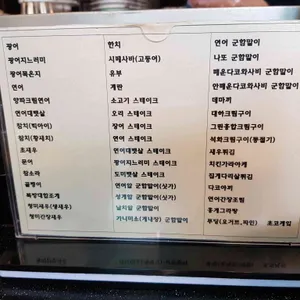 광어
광어지느러미
광어묵은지
연어
양파크림연어
연어대뱃살
참치(빅아이)
참치(황새치)
초새우
문어
참소라
골뱅이
북방대합조개
청미새우(생새우)
청미간장새우
한치
시메사바(고등어)
유부
계란
소고기 스테이크
오리 스테이크
장어 스테이크
연어 스테이크
연어대뱃살 스테이크
광어지느러미 스테이크
도미뱃살 스테이크
연어알 군함말이(싯가)
성게알 군함말이(싯가)
날치알 군함말이
가니미소(게내장) 군함말이
연어 군함말이
나또 군함말이
매운타코와사비 군함말이
안매운타코와사비 군함말이
데마끼
대하크림구이
그린홍합크림구이
석화크림구이(동절기)
새우튀김
치킨가라아게
집게다리살튀김
다코야끼
연어간장조림
홍게그라탕
푸딩(요거트,파인) 초코케잌